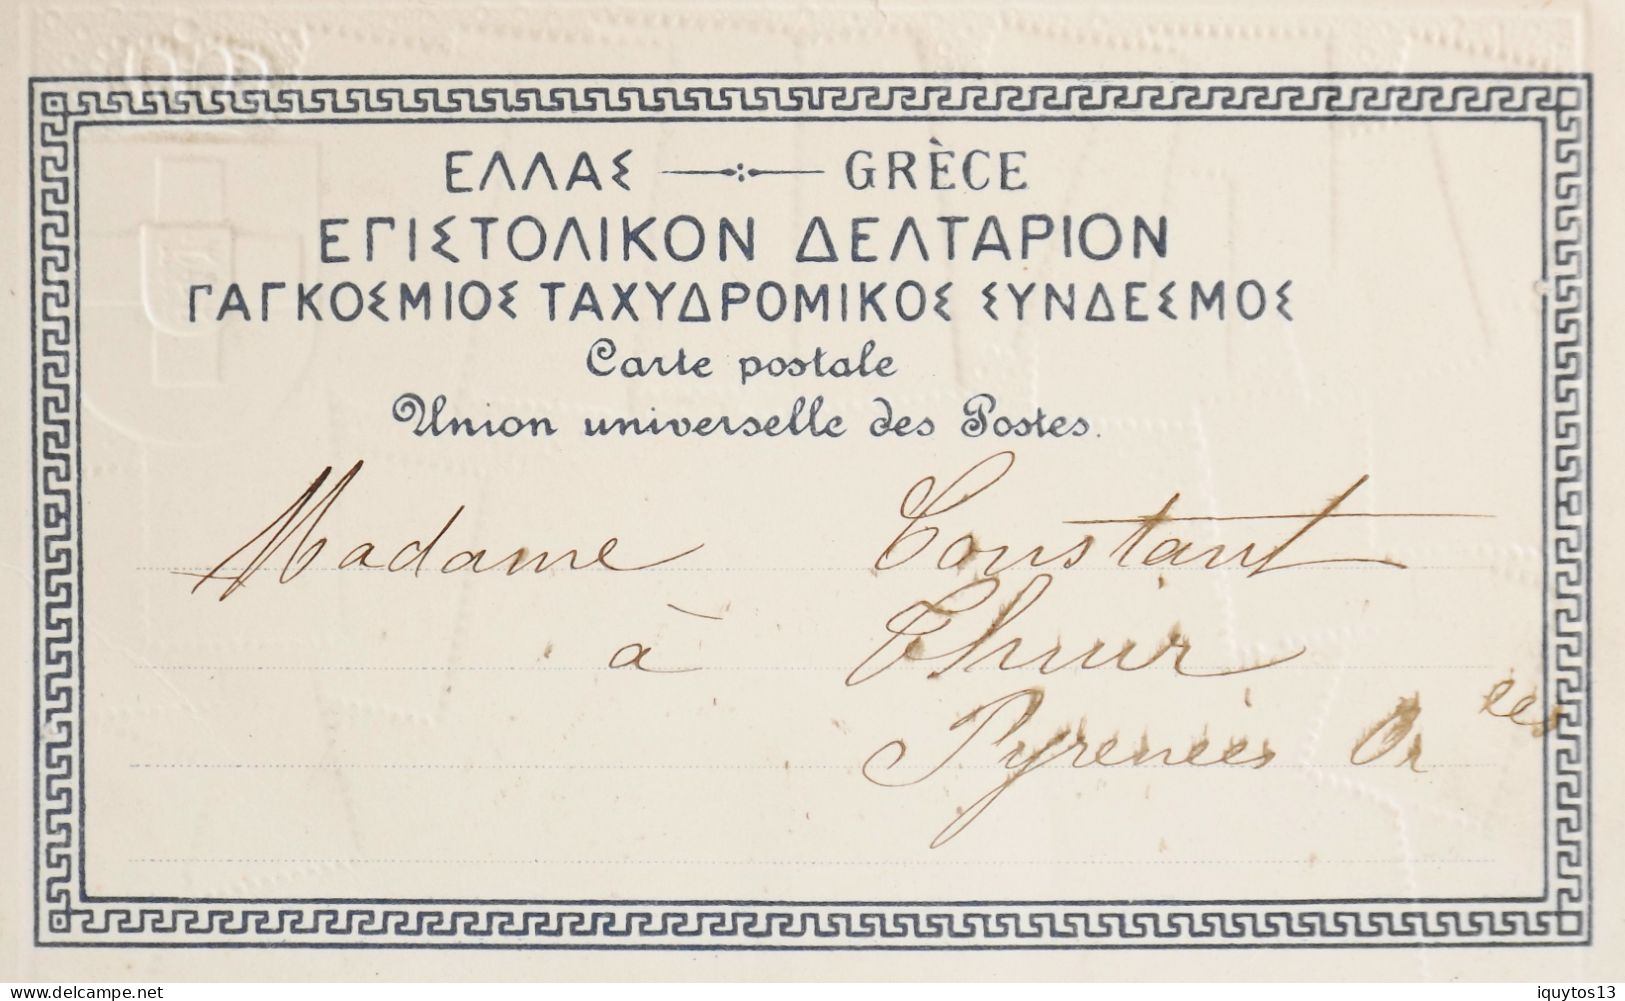 ΕΛΛΑΣ GRÈCE
ΕΠΙΣΤΟΛΙΚΟΝ ΔΕΛΤΑΡΙΟΝ
ΠΑΓΚΟΣΜΙΟΣ ΤΑΧΥΔΡΟΜΙΚΟΣ ΣΥΝΔΕΣΜΟΣ
Carte postale
Union universelle des Postes.
Madame Constant
à Thuir
Pyrenées Or les
www.delcampe.net iquytos13